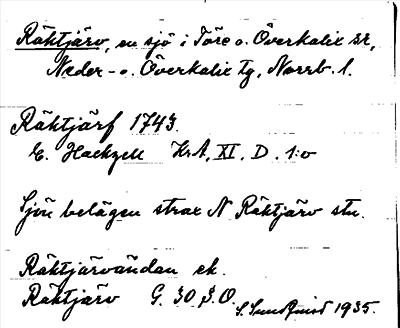 Räktjärv, en sjö i Töre o. Överkalix sr,
Neder- o. Överkalix tg, Norrb. l.
Räktjärf 1743.
E. Hackzell KrA, XI. D. 1:o
Sjön belägen strax N Räktjärv stn.
Räktjärvändan ek.
Räktjärv G. 30 S.O.
S. Sundquist 1935.